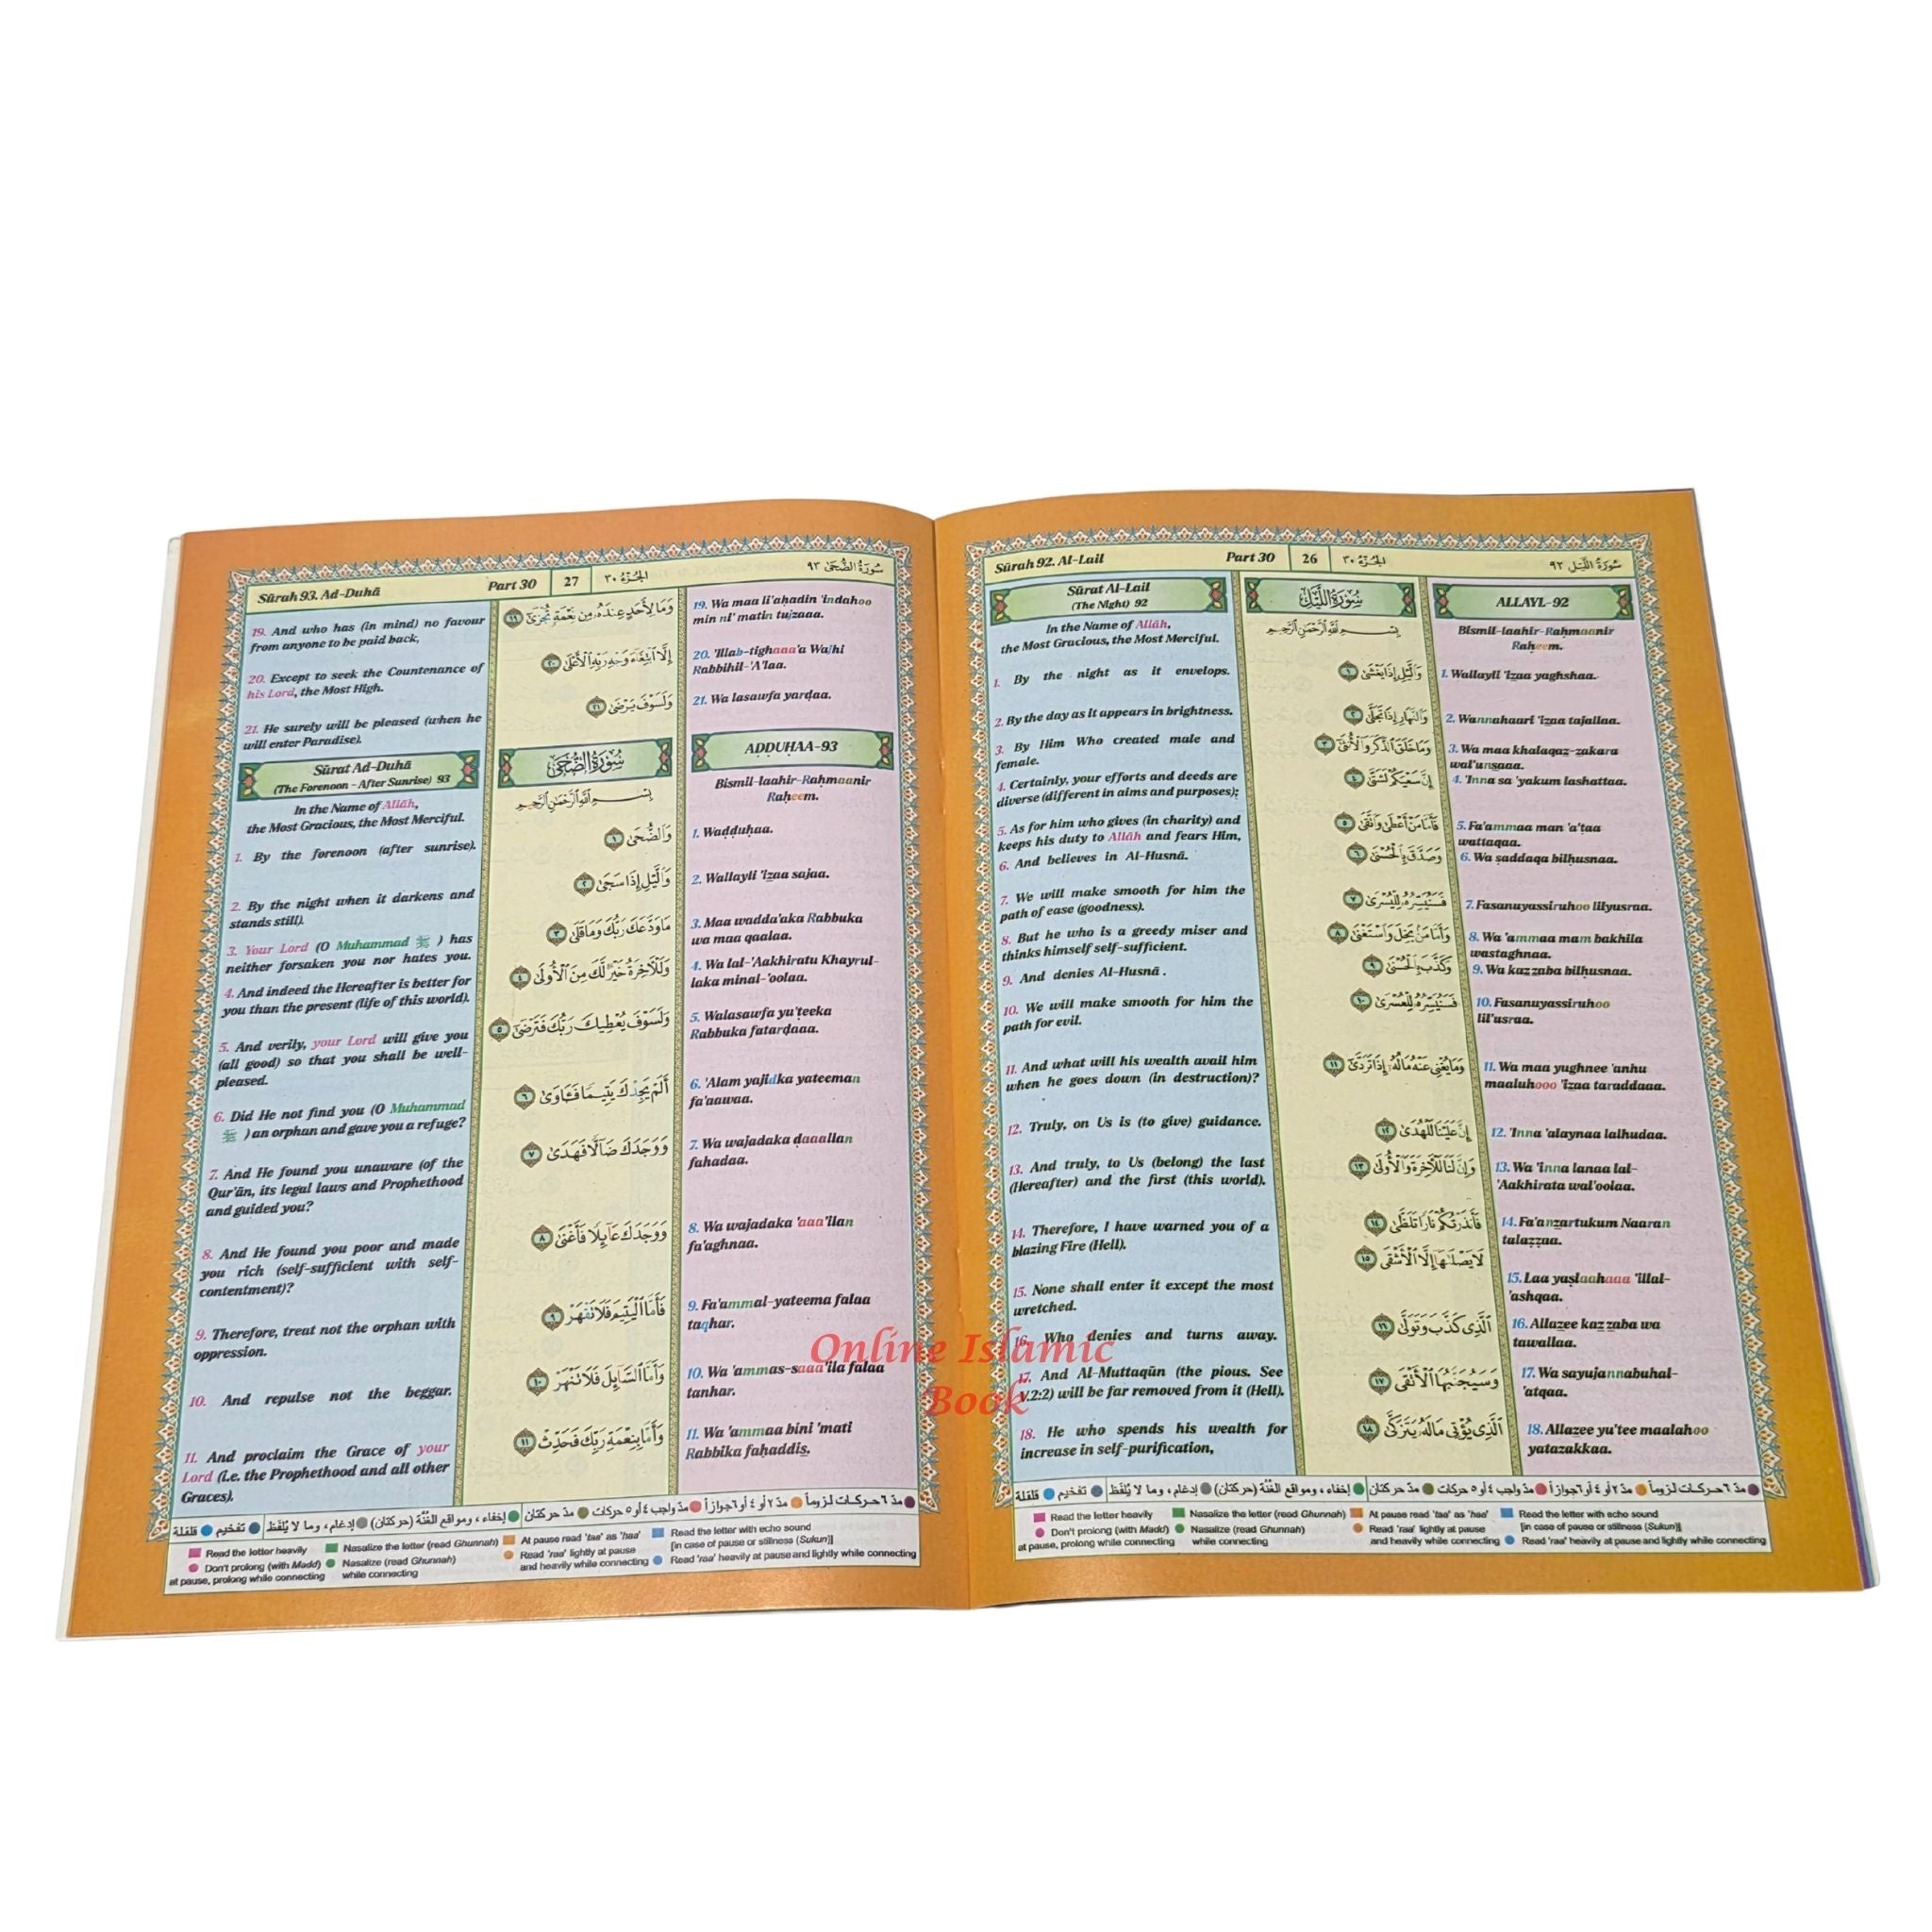 Sûrah 92. Al-Lail
Part 30
26
الجزء ٣٠
سورة الليل ٩٢
Sûrat Al-Lail
(The Night) 92
In the Name of Allâh,
the Most Gracious, the Most Merciful.
1. By the night as it envelops.
2. By the day as it appears in brightness.
3. By Him Who created male and
female.
4. Certainly, your efforts and deeds are
diverse (different in aims and purposes);
5. As for him who gives (in charity) and
keeps his duty to Allâh and fears Him,
6. And believes in Al-Husnâ.
7. We will make smooth for him the
path of ease (goodness).
8. But he who is a greedy miser and
thinks himself self-sufficient.
9. And denies Al-Husnâ.
10. We will make smooth for him the
path for evil.
11. And what will his wealth avail him
when he goes down (in destruction)?
12. Truly, on Us is (to give) guidance.
13. And truly, to Us (belong) the last
(Hereafter) and the first (this world).
14. Therefore, I have warned you of a
blazing Fire (Hell).
15. None shall enter it except the most
wretched.
16. Who denies and turns away.
17. And Al-Muttaqûn (the pious. See
V.2:2) will be far removed from it (Hell).
18. He who spends his wealth for
increase in self-purification,
سُورَةُ اللَّيْلِ
بِسْمِ اللَّهِ الرَّحْمَٰنِ الرَّحِيمِ
وَٱلَّيْلِ إِذَا يَغْشَىٰ ١
وَٱلنَّهَارِ إِذَا تَجَلَّىٰ ٢
وَمَا خَلَقَ ٱلذَّكَرَ وَٱلْأُنثَىٰٓ ٣
إِنَّ سَعْيَكُمْ لَشَتَّىٰ ٤
فَأَمَّا مَنْ أَعْطَىٰ وَٱتَّقَىٰ ٥
وَصَدَّقَ بِٱلْحُسْنَىٰ ٦
فَسَنُيَسِّرُهُۥ لِلْيُسْرَىٰ ٧
وَأَمَّا مَنۢ بَخِلَ وَٱسْتَغْنَىٰ ٨
وَكَذَّبَ بِٱلْحُسْنَىٰ ٩
فَسَنُيَسِّرُهُۥ لِلْعُسْرَىٰ ١٠
وَمَا يُغْنِى عَنْهُ مَالُهُۥٓ إِذَا تَرَدَّىٰٓ ١١
إِنَّ عَلَيْنَا لَلْهُدَىٰ ١٢
وَإِنَّ لَنَا لَلْءَاخِرَةَ وَٱلْأُولَىٰ ١٣
فَأَنذَرْتُكُمْ نَارًا تَلَظَّىٰ ١٤
لَا يَصْلَىٰهَآ إِلَّا ٱلْأَشْقَى ١٥
ٱلَّذِى كَذَّبَ وَتَوَلَّىٰ ١٦
وَسَيُجَنَّبُهَا ٱلْأَتْقَى ١٧
ٱلَّذِى يُؤْتِى مَالَهُۥ يَتَزَكَّىٰ ١٨
ALLAYL-92
Bismil-laahir-Raḥmaanir
Raḥeem.
1. Wallayli 'izaa yaghshaa.
2. Wannahaari 'izaa tajallaa.
3. Wa maa khalaqaz-zakara
wal'unsaaa.
4. 'Inna sa 'yakum lashattaa.
5. Fa'ammaa man 'a'ṭaa
wattaqaa.
6. Wa ṣaddaqa bilḥusnaa.
7. Fasanuyassiruhoo lilyusraa.
8. Wa 'ammaa mam bakhila
wastaghnaa.
9. Wa kazzaba bilḥusnaa.
10. Fasanuyassiruhoo
lil'usraa.
11. Wa maa yughnee 'anhu
maaluhooo 'izaa taraddaaa.
12. 'Inna 'alaynaa lalhudaa.
13. Wa 'inna lanaa lal-
'Aakhirata wal'oolaa.
14. Fa'anzartukum Naaran
talaẓẓaa.
15. Laa yaṣlaahaaa 'illal-
'ashqaa.
16. Allazee kazzaba wa
tawallaa.
17. Wa sayujannabuhal-
'atqaa.
18. Allazee yu'tee maalahoo
yatazakkaa.
مدّ ٦ حركات لزوماً مدّ ٢ أو ٤ أو ٦ جوازاً مدّ واجب ٤ أو ٥ حركات مدّ حركتان إخفاء، ومواقع الغُنَّة (حركتان) إدغام، وما لا يُلفَظ تفخيم قلقلة
Read the letter heavily Nasalize the letter (read Ghunnah) At pause read 'taa' as 'haa' Read the letter with echo sound
Don't prolong (with Madd) Nasalize (read Ghunnah) Read 'raa' lightly at pause [in case of pause or stillness (Sukun)]
at pause, prolong while connecting while connecting and heavily while connecting Read 'raa' heavily at pause and lightly while connecting
Sûrah 93. Ad-Duhâ
Part 30
27
الجزء ٣٠
سورة الضحى ٩٣
19. And who has (in mind) no favour
from anyone to be paid back,
20. Except to seek the Countenance of
his Lord, the Most High.
21. He surely will be pleased (when he
will enter Paradise).
Sûrat Ad-Duhâ
(The Forenoon - After Sunrise) 93
In the Name of Allâh,
the Most Gracious, the Most Merciful.
1. By the forenoon (after sunrise).
2. By the night when it darkens and
stands still).
3. Your Lord (O Muhammad ﷺ ) has
neither forsaken you nor hates you.
4. And indeed the Hereafter is better for
you than the present (life of this world).
5. And verily, your Lord will give you
(all good) so that you shall be well-
pleased.
6. Did He not find you (O Muhammad
ﷺ ) an orphan and gave you a refuge?
7. And He found you unaware (of the
Qur'ân, its legal laws and Prophethood
and guided you?
8. And He found you poor and made
you rich (self-sufficient with self-
contentment)?
9. Therefore, treat not the orphan with
oppression.
10. And repulse not the beggar.
11. And proclaim the Grace of your
Lord (i.e. the Prophethood and all other
Graces).
وَمَا لِأَحَدٍ عِندَهُۥ مِن نِّعْمَةٍ تُجْزَىٰٓ ١٩
إِلَّا ٱبْتِغَآءَ وَجْهِ رَبِّهِ ٱلْأَعْلَىٰ ٢٠
وَلَسَوْفَ يَرْضَىٰ ٢١
سُورَةُ الضُّحَىٰ
بِسْمِ اللَّهِ الرَّحْمَٰنِ الرَّحِيمِ
وَٱلضُّحَىٰ ١
وَٱلَّيْلِ إِذَا سَجَىٰ ٢
مَا وَدَّعَكَ رَبُّكَ وَمَا قَلَىٰ ٣
وَلَلْءَاخِرَةُ خَيْرٌ لَّكَ مِنَ ٱلْأُولَىٰ ٤
وَلَسَوْفَ يُعْطِيكَ رَبُّكَ فَتَرْضَىٰٓ ٥
أَلَمْ يَجِدْكَ يَتِيمًا فَـَٔاوَىٰ ٦
وَوَجَدَكَ ضَآلًّا فَهَدَىٰ ٧
وَوَجَدَكَ عَآئِلًا فَأَغْنَىٰ ٨
فَأَمَّا ٱلْيَتِيمَ فَلَا تَقْهَرْ ٩
وَأَمَّا ٱلسَّآئِلَ فَلَا تَنْهَرْ ١٠
وَأَمَّا بِنِعْمَةِ رَبِّكَ فَحَدِّثْ ١١
19. Wa maa li'aḥadin 'indahoo
min ni' matin tujzaaa.
20. 'Illab-tighaaa'a Wajhi
Rabbihil-'A'laa.
21. Wa lasawfa yarḍaa.
ADDUHAA-93
Bismil-laahir-Raḥmaanir
Raḥeem.
1. Waḍḍuḥaa.
2. Wallayli 'izaa sajaa.
3. Maa wadda'aka Rabbuka
wa maa qaalaa.
4. Wa lal-'Aakhiratu Khayrul-
laka minal-'oolaa.
5. Walasawfa yu'ṭeeka
Rabbuka fatarḍaaa.
6. 'Alam yajidka yateeman
fa'aawaa.
7. Wa wajadaka ḍaaallan
fahadaa.
8. Wa wajadaka 'aaa'ilan
fa'aghnaa.
9. Fa'ammal-yateema falaa
taqhar.
10. Wa 'ammas-saaa'ila falaa
tanhar.
11. Wa 'ammaa bini 'mati
Rabbika faḥaddis.
مدّ ٦ حركات لزوماً مدّ ٢ أو ٤ أو ٦ جوازاً مدّ واجب ٤ أو ٥ حركات مدّ حركتان إخفاء، ومواقع الغُنَّة (حركتان) إدغام، وما لا يُلفَظ تفخيم قلقلة
Read the letter heavily Nasalize the letter (read Ghunnah) At pause read 'taa' as 'haa' Read the letter with echo sound
Don't prolong (with Madd) Nasalize (read Ghunnah) Read 'raa' lightly at pause [in case of pause or stillness (Sukun)]
at pause, prolong while connecting while connecting and heavily while connecting Read 'raa' heavily at pause and lightly while connecting
Online Islamic
Book